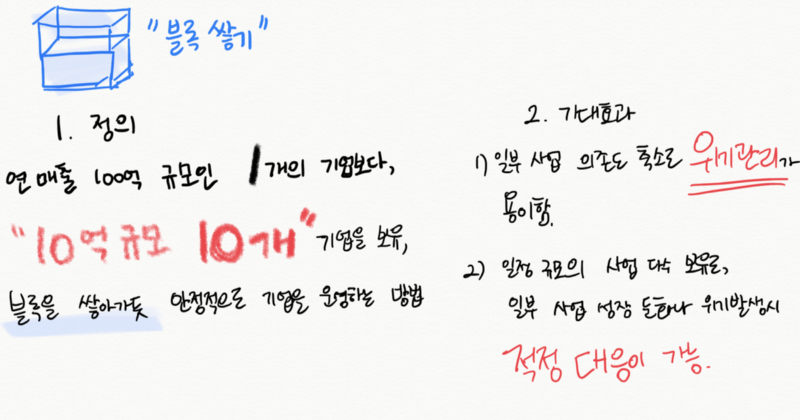 "블록 쌓기"
1. 정의
연 매출 100억 규모인 1개의 기업보다,
"10억 규모 10개" 기업을 보유,
블록을 쌓아가듯 안정적으로 기업을 운영하는 방법
2. 기대효과
1) 일부 사업 의존도 축소로 위기관리가
용이함.
2) 일정 규모의 사업 다수 보유로,
일부 사업 성장 둔화나 위기발생시
적정 대응이 가능.